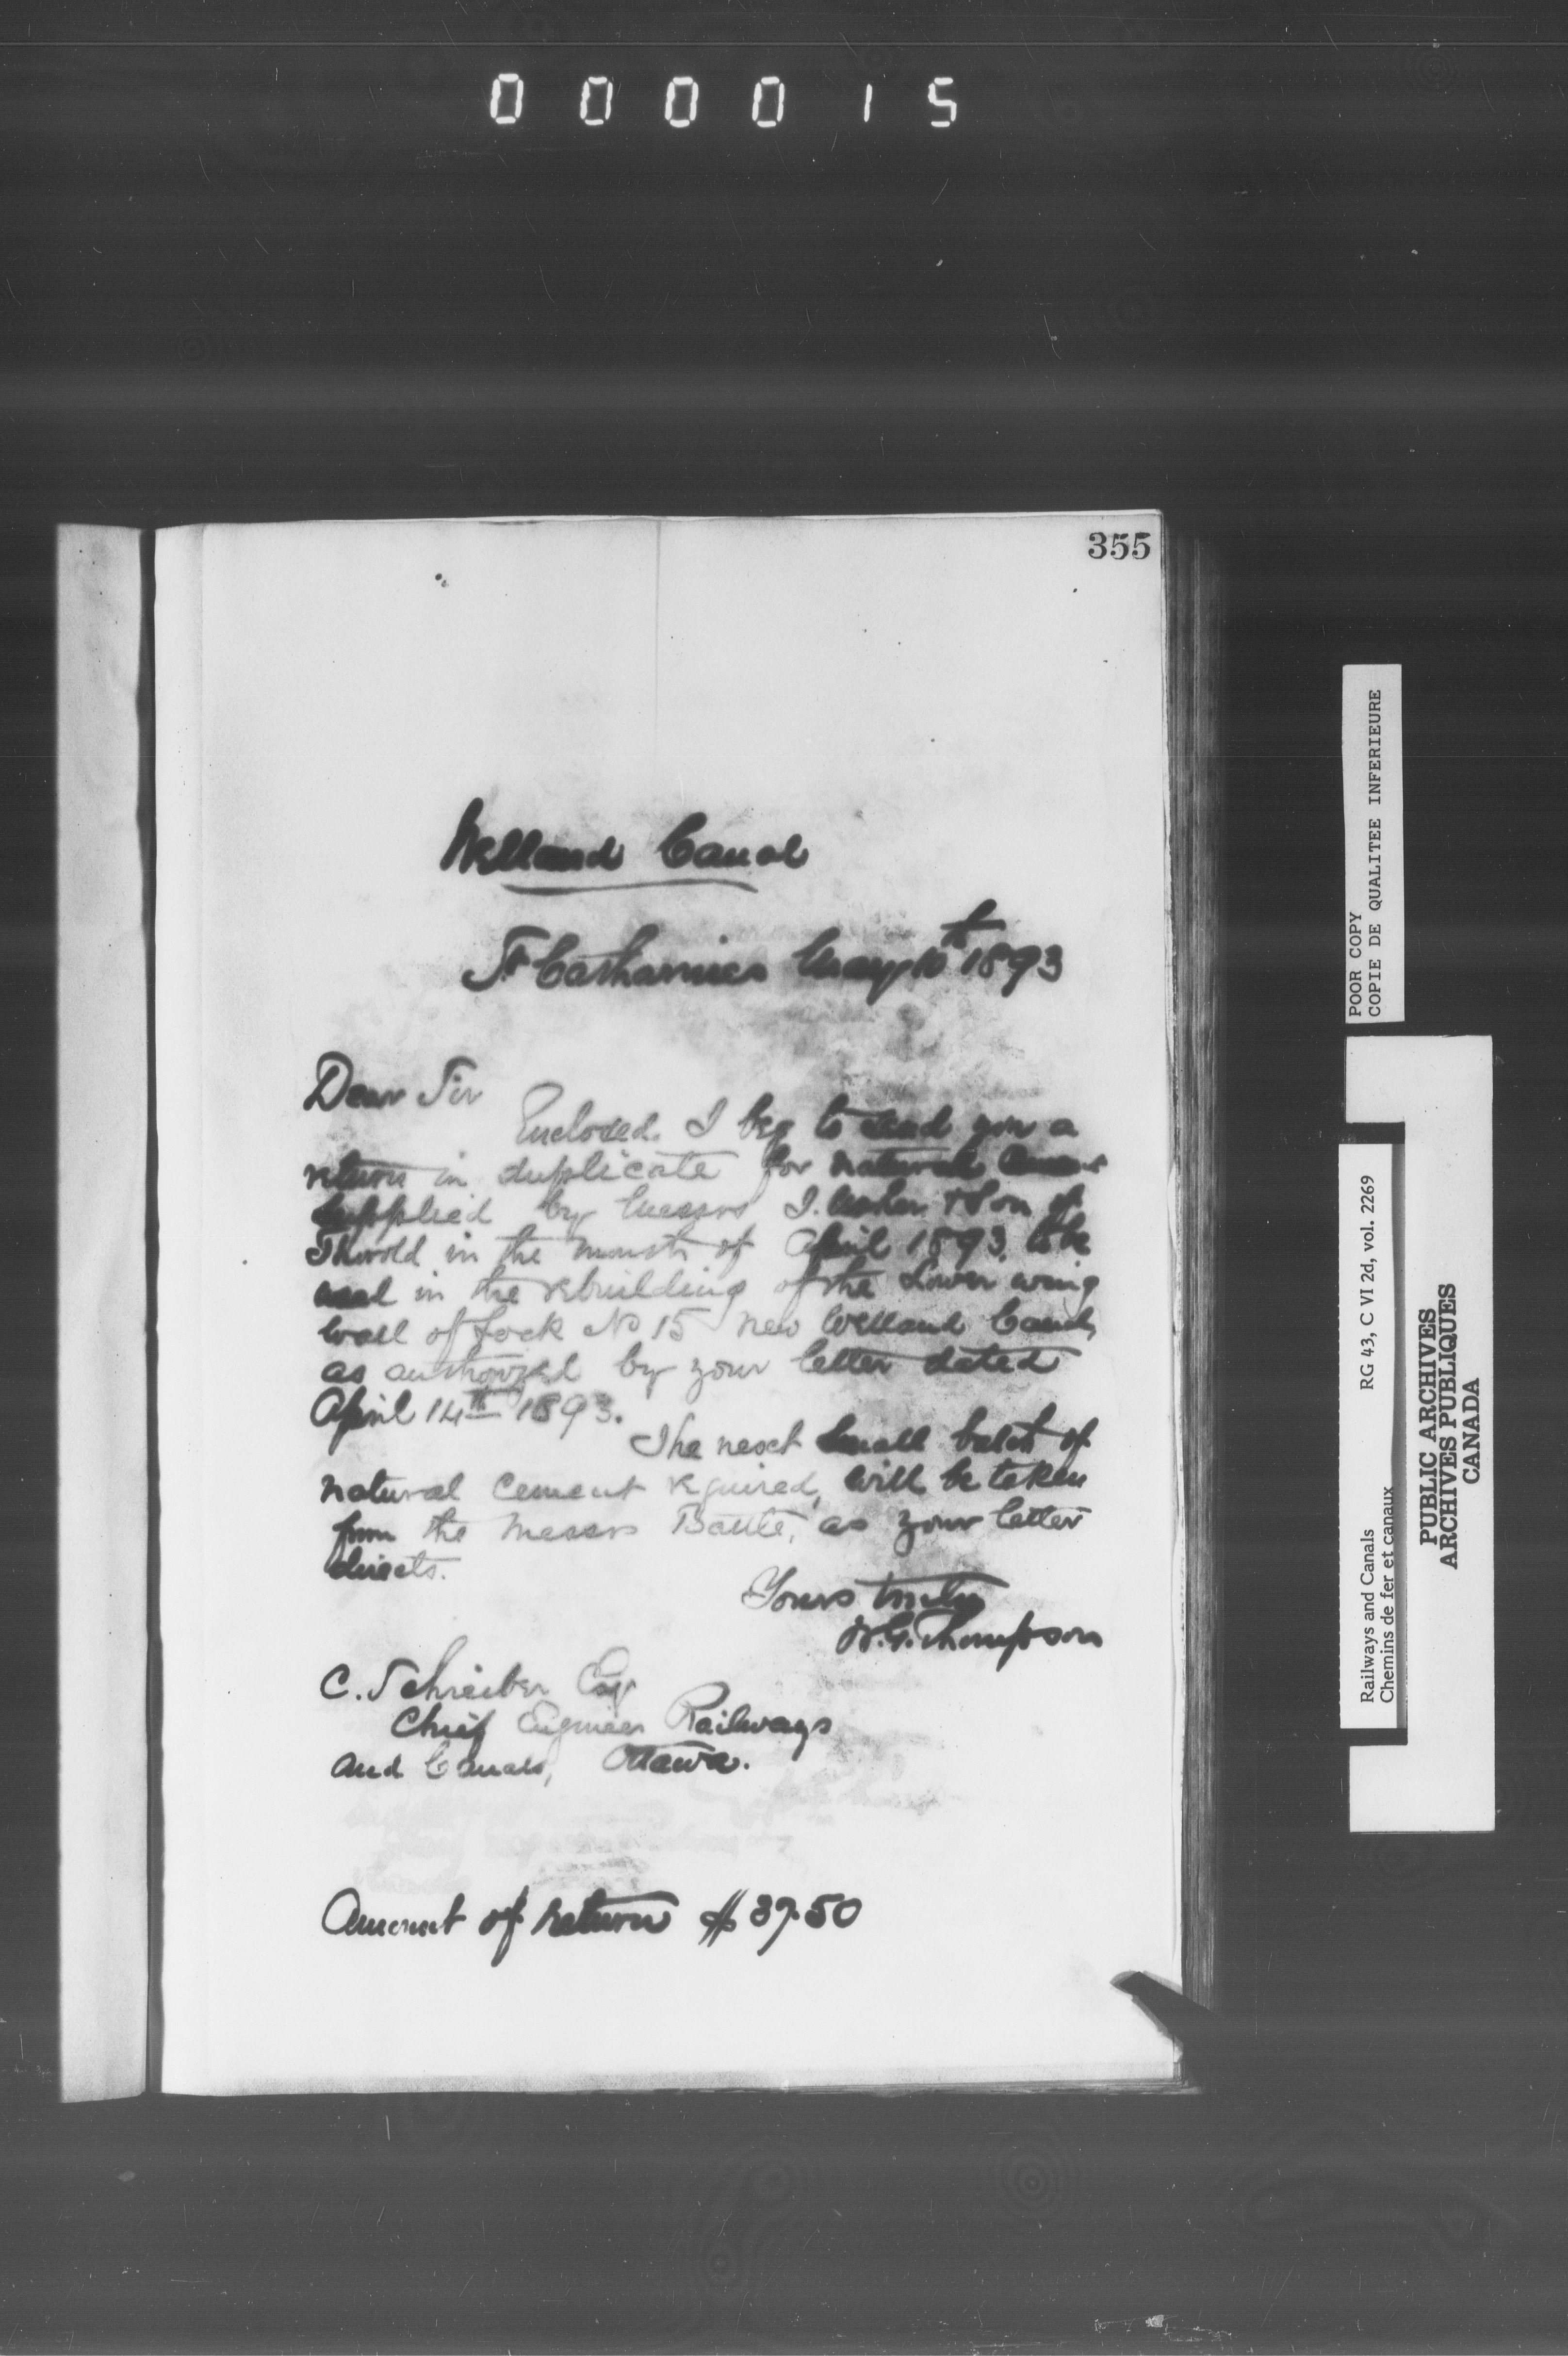 000015
355
Welland Canal
St Catharines May 10th 1893
Dear Sir
Enclosed I beg to send you a
return in duplicate for natural Cement
supplied by Messrs I. Usher & Son of
Thorold in the month of April 1893, to be
used in the rebuilding of the Lower wing
wall of Lock No 15 new Welland Canal,
as authorized by your letter dated
April 14th 1893.
The next small batch of
natural cement required, will be taken
from the Messrs Battle, as your letter
directs.
Yours truly
W.G. Thompson
C. Schreiber Esq
Chief Engineer Railways
and Canals, Ottawa.
Amount of return $ 39.50
POOR COPY
COPIE DE QUALITEE INFERIEURE
Railways and Canals RG 43, C VI 2d, vol. 2269
Chemins de fer et canaux
PUBLIC ARCHIVES
ARCHIVES PUBLIQUES
CANADA